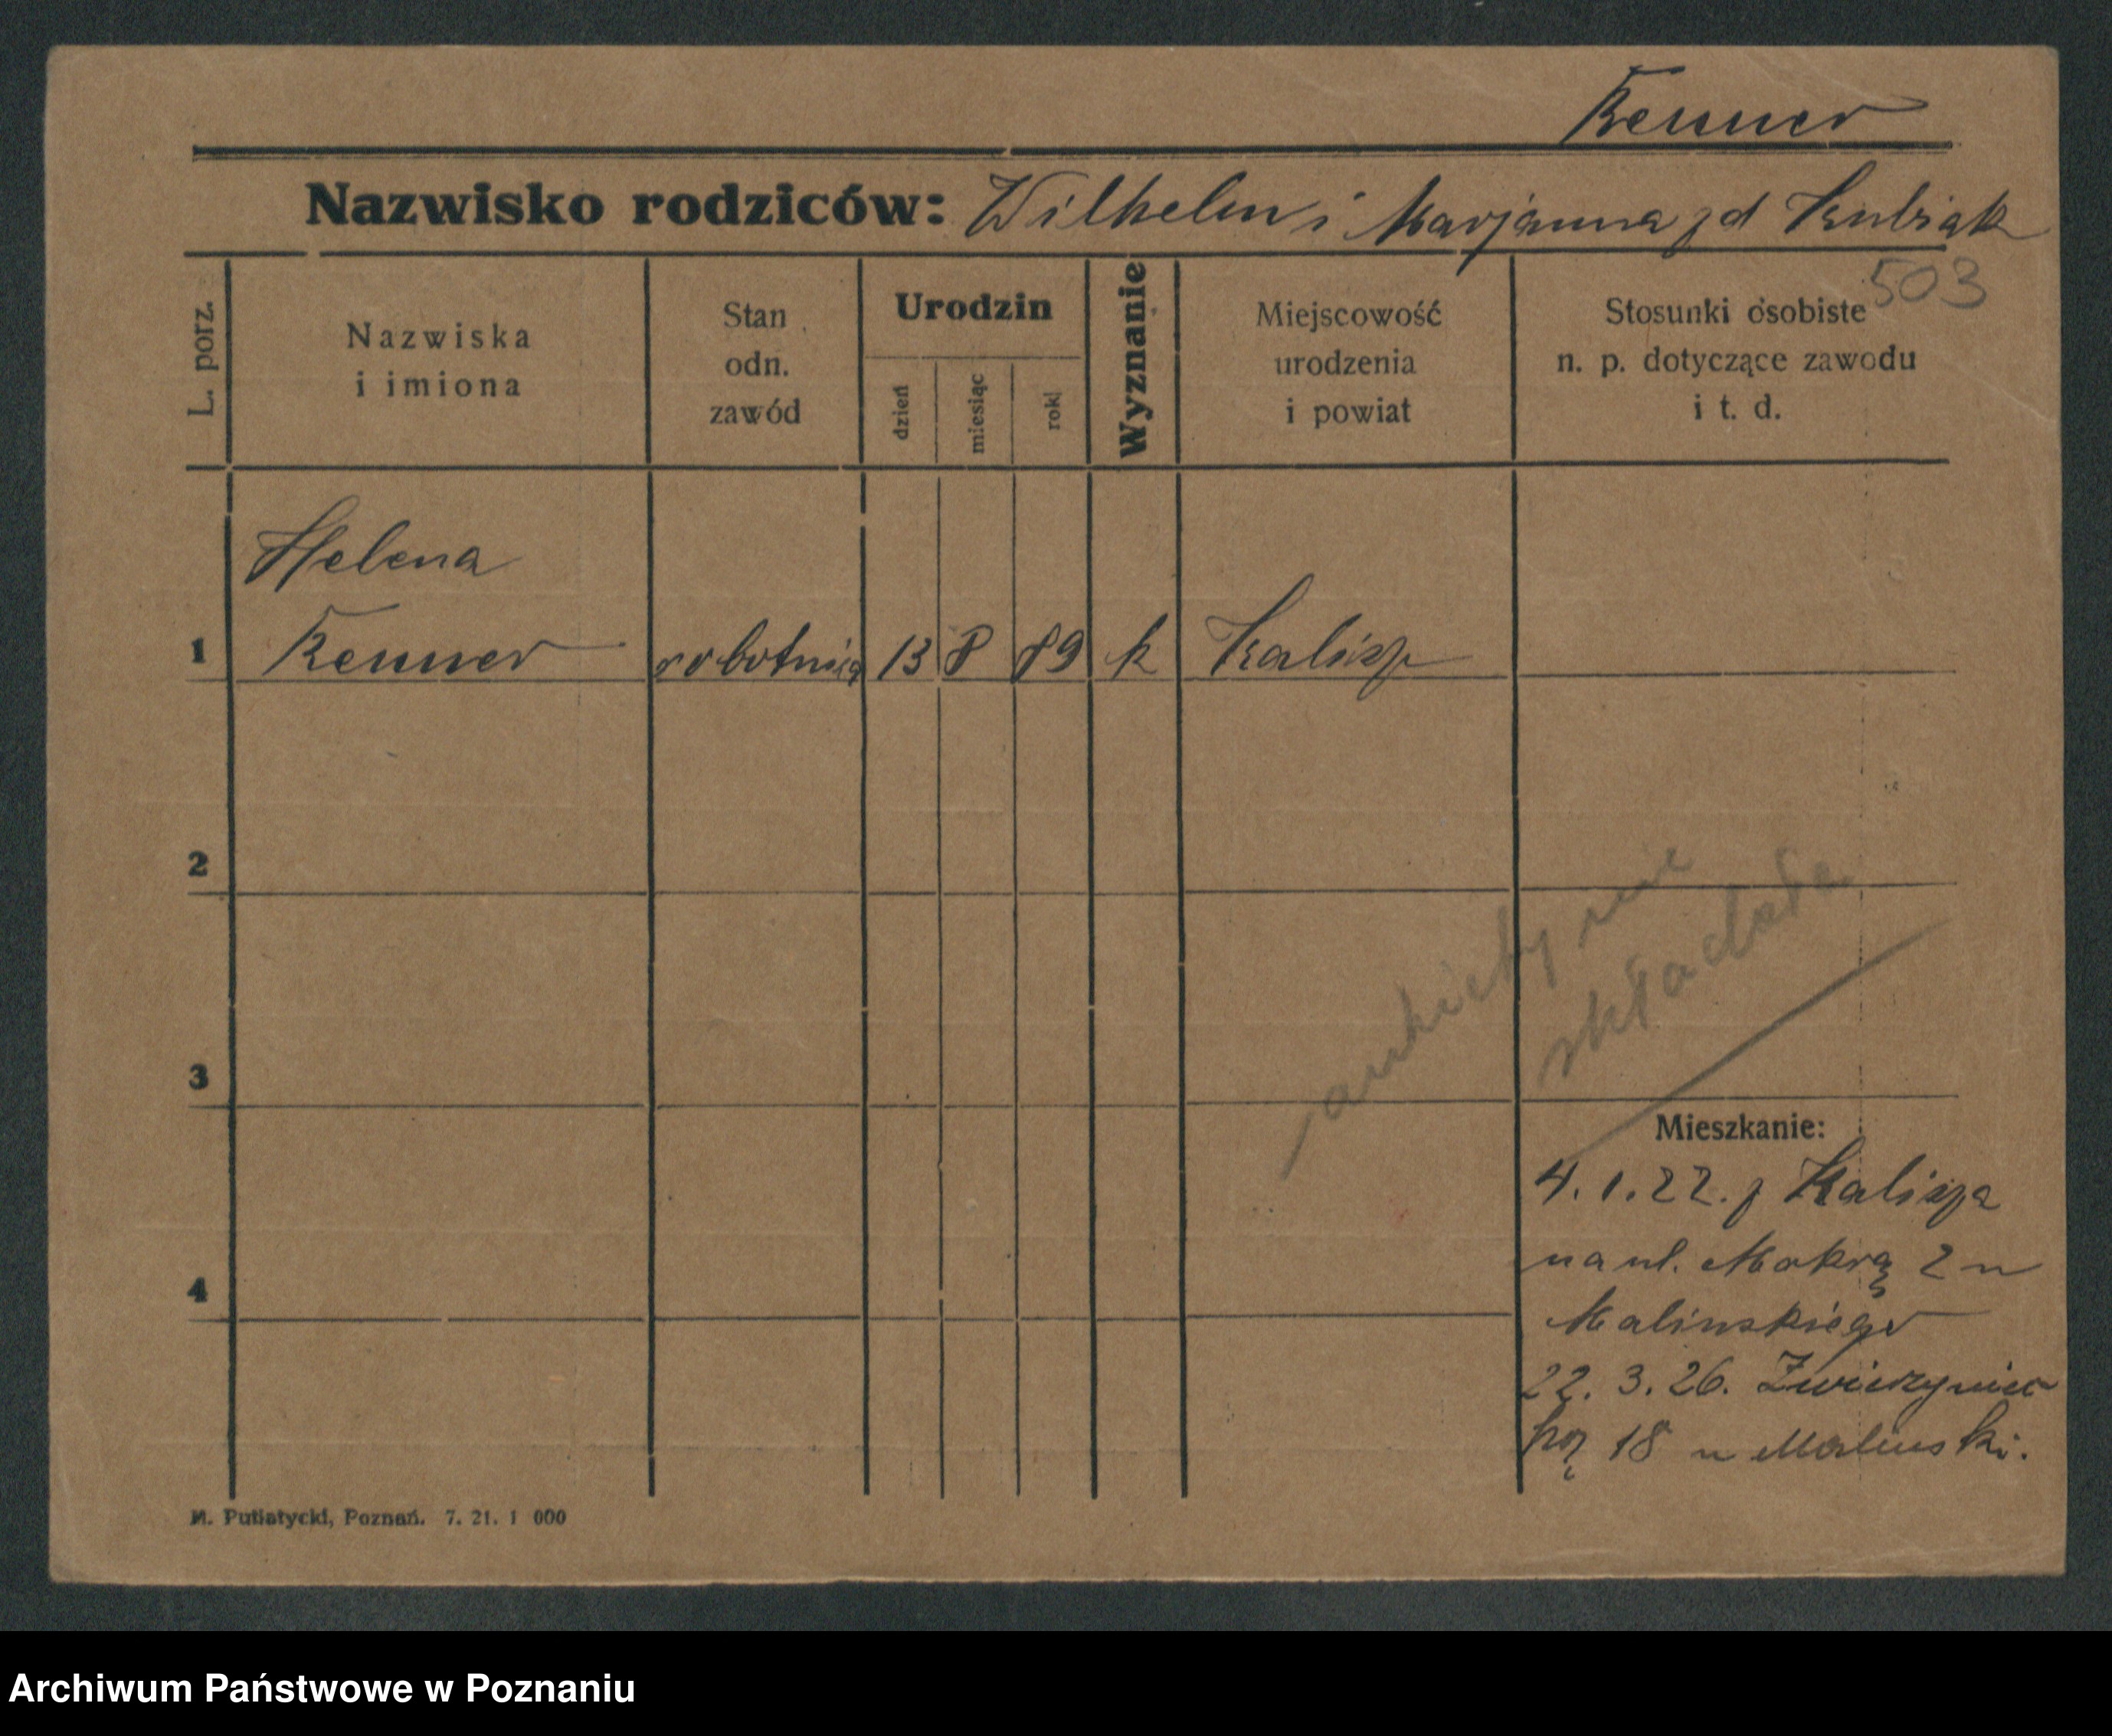 Renner
Nazwisko rodziców: Wilhelm i Marjanna zd Kubiak
503
L. porz.
Nazwiska
i imiona
Stan
odn.
zawód
Urodzin
dzień
miesiąc
rok
Wyznanie
Miejscowość
urodzenia
i powiat
Stosunki osobiste
n. p. dotyczące zawodu
i t. d.
Helena
1 Renner robotnica 13 8 89 k Kalisz
2
ankiety nie
składała
3
Mieszkanie:
4.1.22. z Kalisza
na ul. Mokrą 2 u
4
Malinskiego
22.3.26. Zwierzyniec
ką 18 u Malinski.
M. Putiatycki, Poznań. 7. 21. 1 000
Archiwum Państwowe w Poznaniu